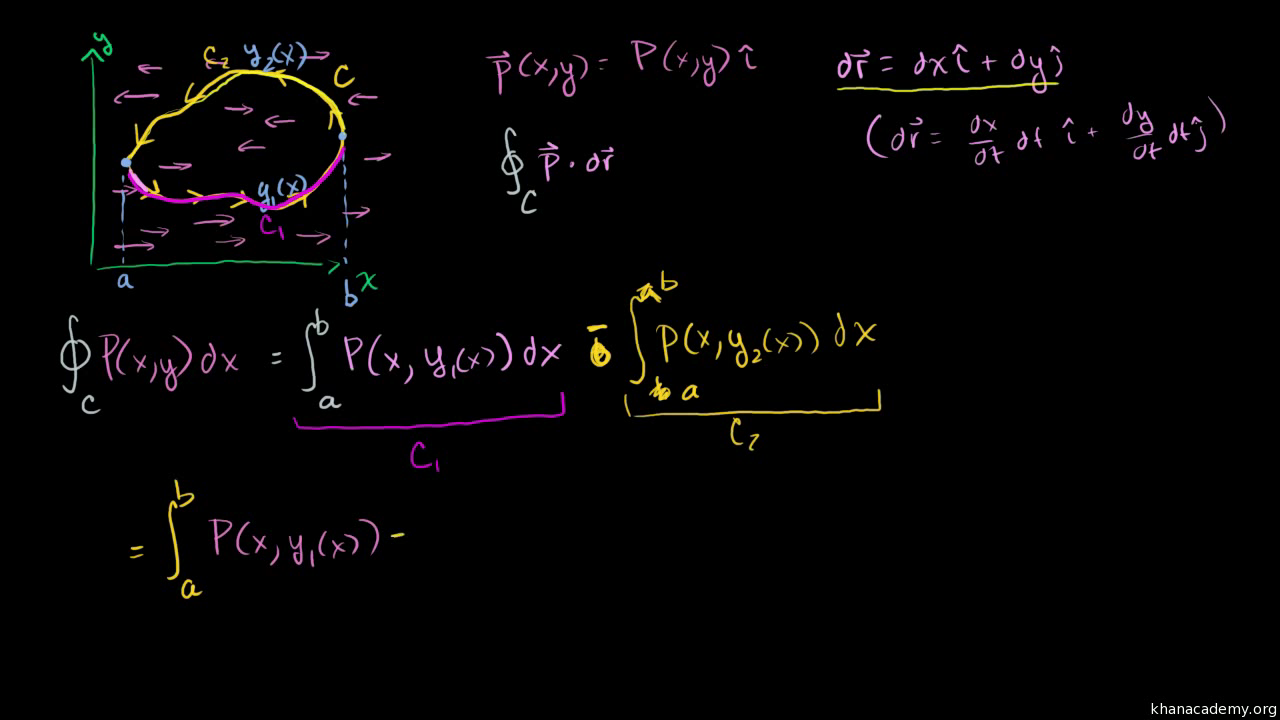 y
C₂ y₂(x)
C
y₁(x)
C₁
a
b
x
p⃗(x,y) = P(x,y) î
dr⃗ = dx î + dy ĵ
(dr⃗ = dx/dt dt î + dy/dt dt ĵ)
∮_C p⃗ · dr⃗
∮_C P(x,y) dx = ∫_a^b P(x, y₁(x)) dx - ∫_a^b P(x, y₂(x)) dx
C₁
C₂
= ∫_a^b P(x, y₁(x)) -
khanacademy.org